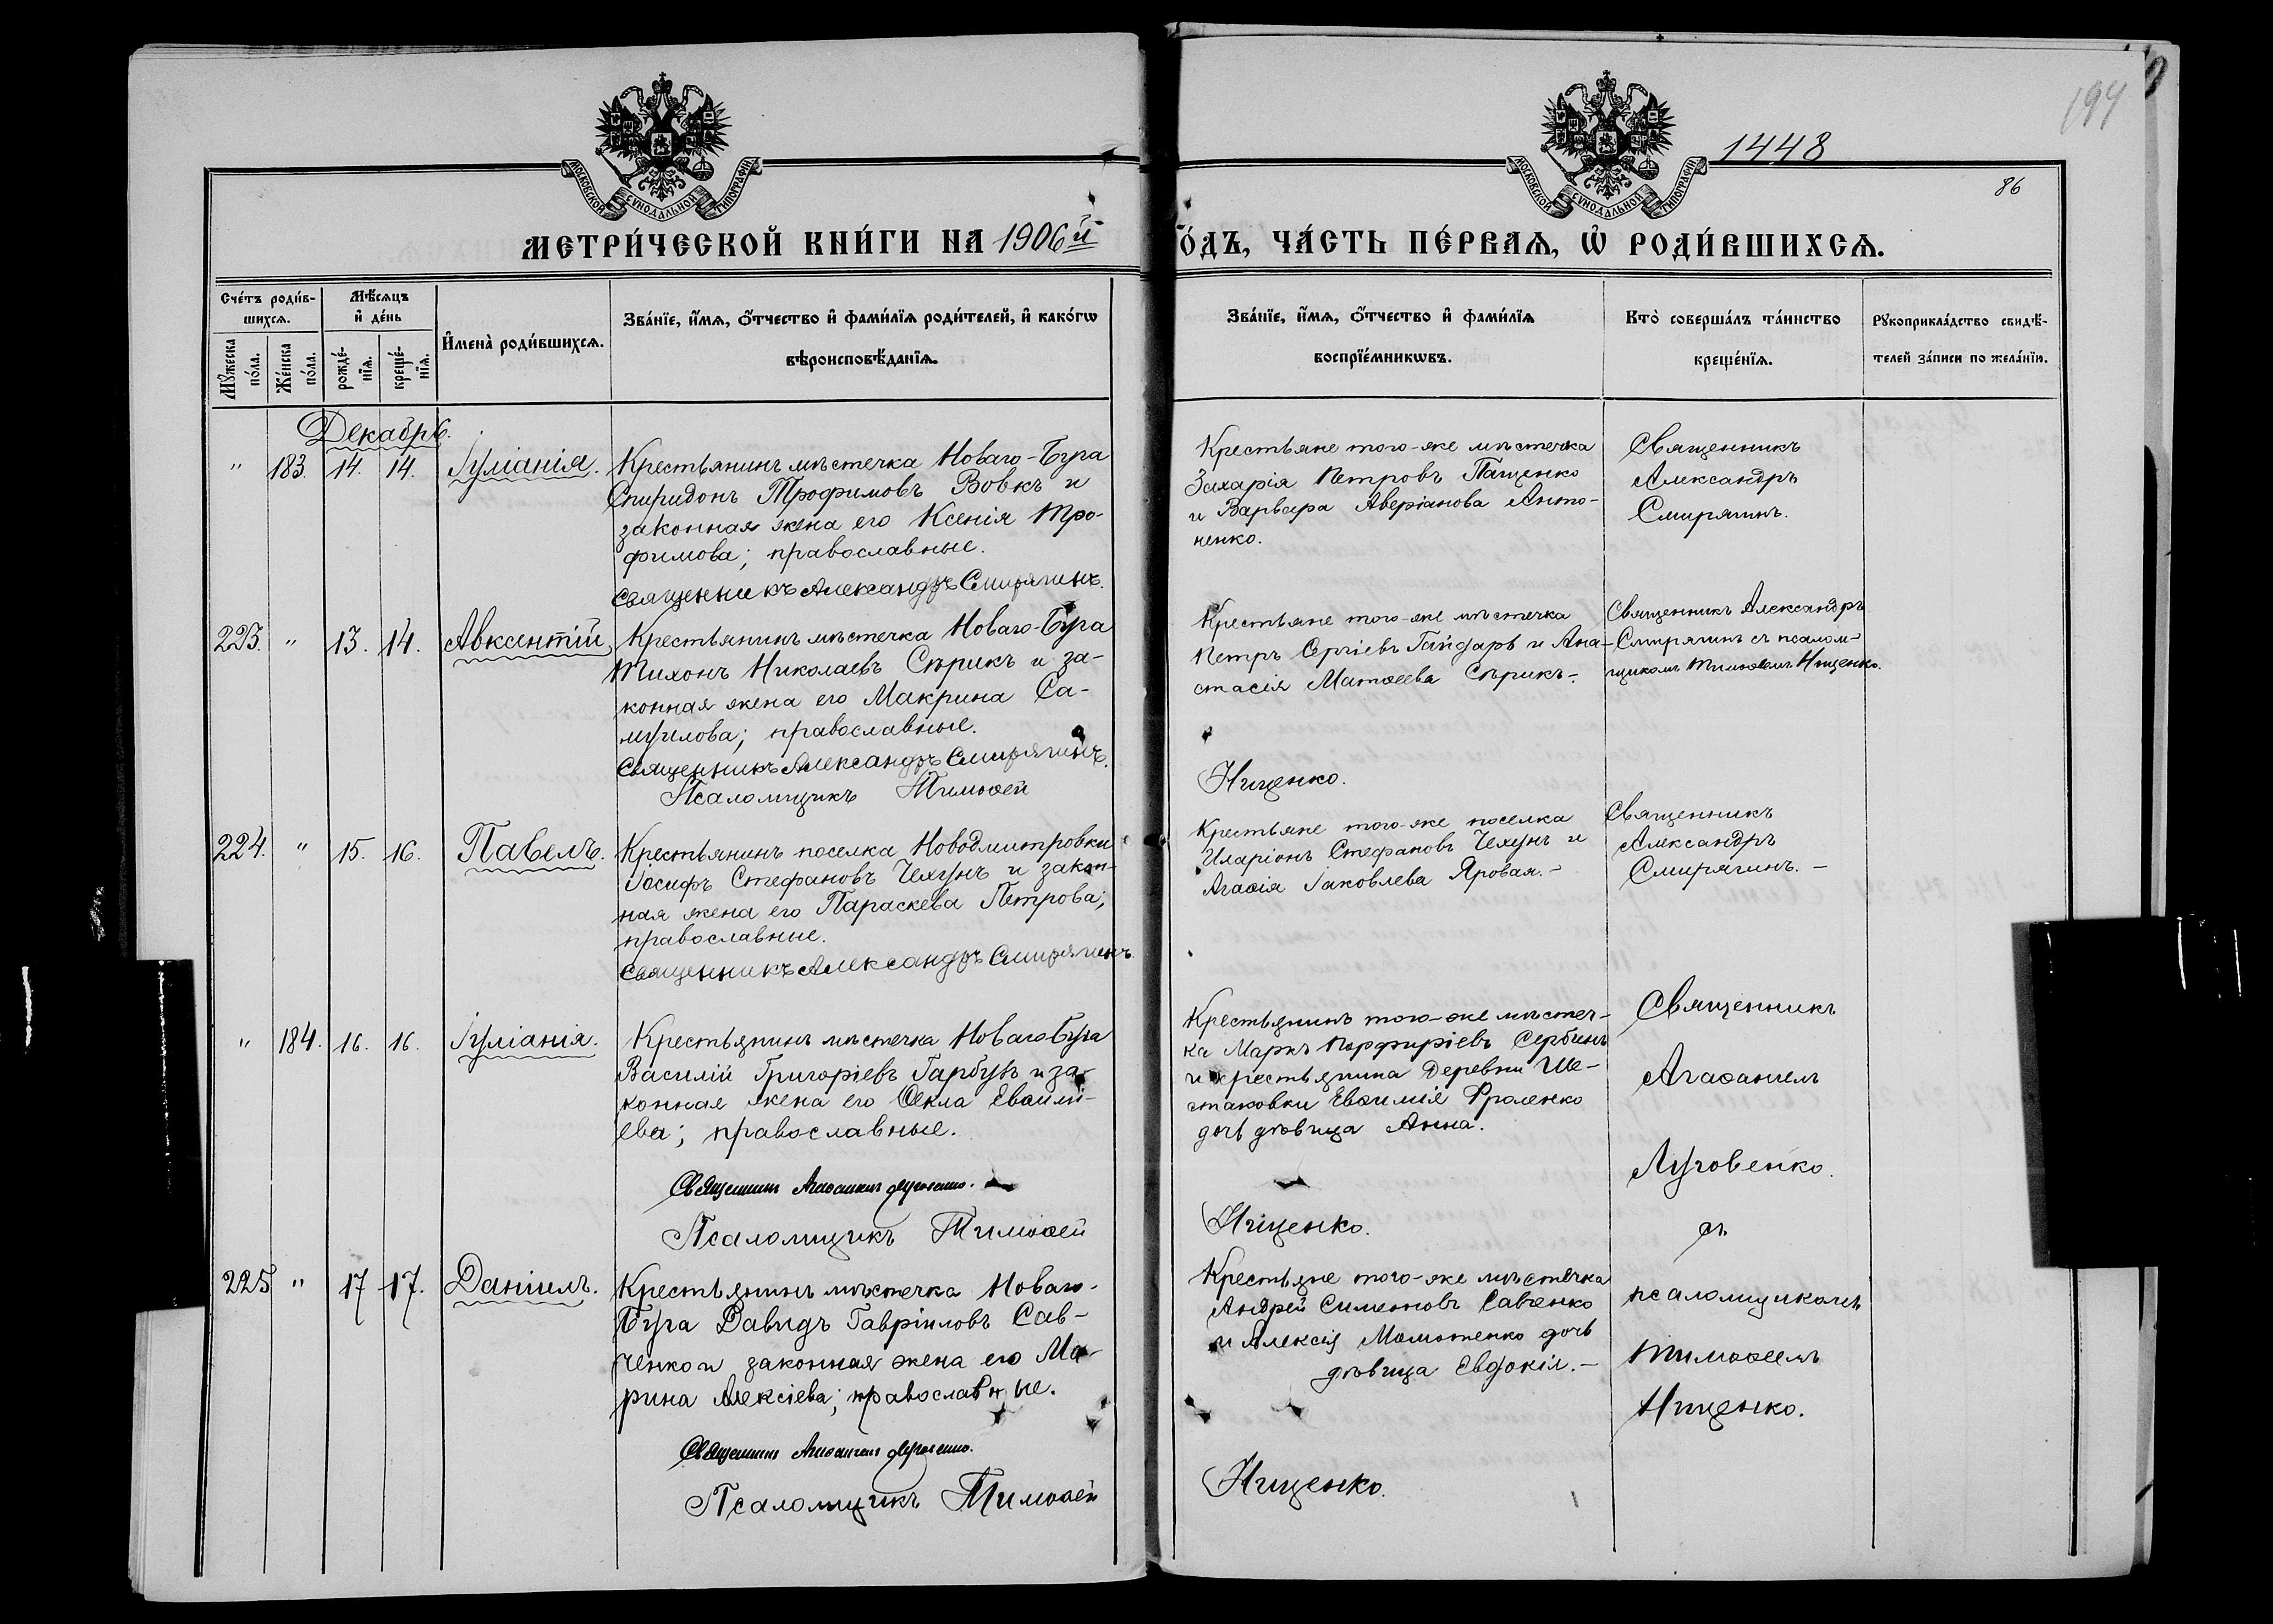 1448
194
86
МОСКОВСКОЙ СѴНОДАЛЬНОЙ ТИПОГРАФІИ
МОСКОВСКОЙ СѴНОДАЛЬНОЙ ТИПОГРАФІИ
МЕТРИ́ЧЕСКОЙ КНИ́ГИ НА 1906й
О́ДЪ, ЧА́СТЬ ПЕ́РВАѦ, Ѡ҆ РОДИ́ВШИХСѦ.
Сче́тъ роди́в-
шихсѧ.
Мꙋ́жеска
по́ла.
Же́нска
по́ла.
Мѣ́сѧцъ
и҆ де́нь
рожде́-
нїѧ.
креще́-
нїѧ.
И҆мена̀ роди́вшихсѧ.
Зва́нїе, и҆́мѧ, о҆́тчество и҆ фами́лїѧ роди́телей, и҆ како́гѡ
вѣроисповѣ́данїѧ.
Зва́нїе, и҆́мѧ, о҆́тчество и҆ фами́лїѧ
воспрїе́мникѡвъ.
Кто̀ соверша́лъ та́инство
креще́нїѧ.
Рꙋкоприкла́дство свидѣ́-
телей за́писи по жела́нїю.
Декабрь.
" 183. 14. 14. Іуліанія.
Крестьянинъ мѣстечка Новаго-Буга
Спиридонъ Трофимовъ Вовкъ и
законная жена его Ксенія Тро-
фимова; православные.
Священникъ Александръ Смирягинъ.
Крестьяне того-же мѣстечка
Захарія Петровъ Пащенко
и Варвара Аверіанова Анто-
ненко.
Священникъ
Александръ
Смирягинъ.
223. " 13. 14. Авксентій,
Крестьянинъ мѣстечка Новаго-Буга
Тихонъ Николаевъ Сѣрикъ и за-
конная жена его Макрина Са-
муилова; православные.
Священникъ Александръ Смирягинъ.
Псаломщикъ Тимоѳей
Крестьяне того-же мѣстечка
Петръ Сергіевъ Гайдаръ и Ана-
стасія Матѳеева Сѣрикъ.-
Нищенко.
Священникъ Александръ
Смирягинъ съ псалом-
щикомъ Тимоѳеемъ Нищенко.
224. " 15. 16. Павелъ.
Крестьянинъ поселка Новодмитровки
Іосифъ Стефановъ Чехунъ и закон-
ная жена его Параскева Петрова;
православные.
Священникъ Александръ Смирягинъ.
Крестьяне того-же поселка
Иларіонъ Стефановъ Чехунъ и
Агаѳія Іаковлева Яровая.-
Священникъ
Александръ
Смирягинъ.-
" 184. 16. 16. Іуліанія.
Крестьянинъ мѣстечка Новаго Буга
Василій Григоріевъ Гарбузъ и за-
конная жена его Ѳекла Евѳимі-
ева; православные.
Священникъ Агаѳангелъ Луговенко.
Псаломщикъ Тимоѳей
Крестьянинъ того-же мѣстеч-
ка Маркъ Порфиріевъ Сербинъ
и крестьянина деревни Ше-
стаковки Евѳимія Фроленко
дочь дѣвица Анна.
Нищенко.
Священникъ
Агаѳангелъ
Луговенко.
съ
псаломщикомъ
Тимоѳеемъ
Нищенко.
225 " 17 17. Даніилъ.
Крестьянинъ мѣстечка Новаго-
Буга Давидъ Гавріиловъ Сав-
ченко и законная жена его Ма-
рина Алексіева; православные.
Священникъ Агаѳангелъ Луговенко.
Псаломщикъ Тимоѳей
Крестьяне того-же мѣстечка
Андрей Симеоновъ Савченко
и Алексія дочь
дѣвица Евдокія.-
Нищенко.